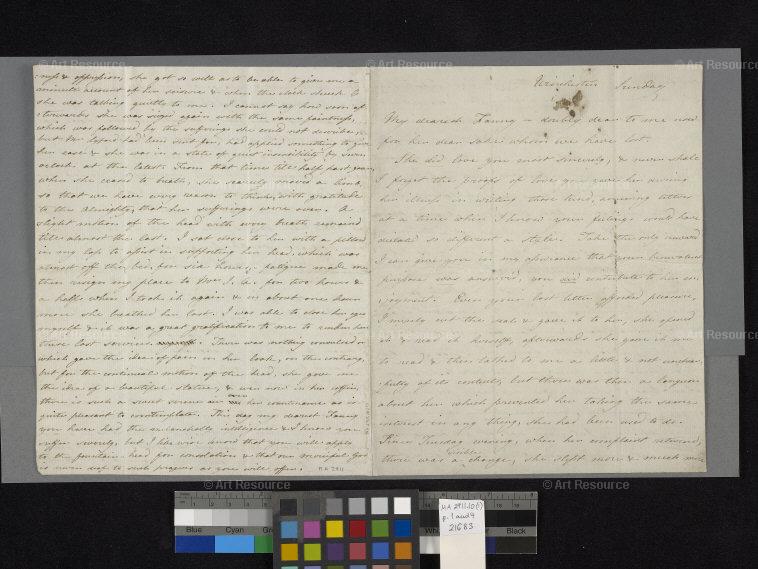 ness & oppression, she got so well as to be able to give me a
minute account of her seisure & when the clock struck 6
she was talking quietly to me. I cannot say how soon af-
terwards she was siezed again with the same faintness,
which was followed by the sufferings she could not describe,
but Mr Lyford had been sent for, had applied something to give
her ease & she was in a state of quiet insensibility by seven
oclock at the latest. From that time till half past four,
when she ceased to breathe, she scarcely moved a limb,
so that we have every reason to think, with gratitude
to the Almighty, that her sufferings were over. A
slight motion of the head with every breath remaind
till almost the last. I sat close to her with a pillow
in my lap to assist in supporting her head, which was
almost off the bed, for six hours,– fatigue made me
then resign my place to Mrs J. A. for two hours &
a half when I took it again & in about one hour
more she breathed her last. I was able to close her eyes
myself & it was a great gratification to me to render her
these last services. There was nothing convulsed or
which gave the idea of pain in her look, on the contrary,
but for the continual motion of the head, she gave me
the idea of a beautiful statue, & even now in her coffin,
there is such a sweet serene air over her countenance as is
quite pleasant to contemplate. This day my dearest Fanny
you have had the melancholy intelligence & I know you
suffer severely, but I likewise know that you will apply
to the fountain-head for consolation & that our merciful God
is never deaf to such prayers as you will offer.
MA 2911
Winchester Sunday
My dearest Fanny – doubly dear to me now
for her dear sake whom we have lost.
She did love you most sincerely, & never shall
I forget the proofs of love you gave her during
her illness in writing those kind, amusing letters
at a time when I know your feelings would have
dictated so different a style. Take the only reward
I can give you in my assurance that your benevolent
purpose was answer'd, you did contribute to her en-
joyment. Even your last letter afforded pleasure,
I merely cut the seal & gave it to her, she opened
it & read it herself, afterwards she gave it me
to read & then talked to me a little & not unchear-
fully of its contents, but there was then a languor
about her which prevented her taking the same
interest in any thing, she had been used to do.
Since Tuesday evening, when her complaint returnd,
there was a visible change, she slept more & much more
© Art Resource
© Art Resource
© Art Resource
© Art Resource
© Art Resource
© Art Resource
© Art Resource
© Art Resource
Blue
Cyan
Black
MA 2911.10(1)
p. 1 and 4
21683